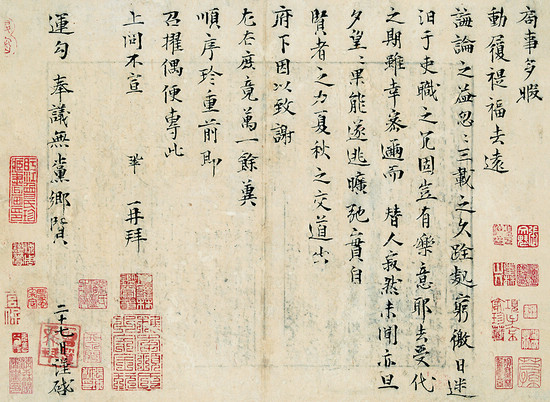 局事多暇
動履禔福去遠
誨論之益忽〻三載之久跧處窮徼日迷
汨于吏職之冗固豈有樂意耶去受代
之期雖幸密邇而替人寂然未聞亦旦
夕望〻果能遂逃曠弛實自
賢者之力夏秋之交道出
府下因以致謝
左右庶竟萬一餘冀
順序珍重前即
召擢偶便專此
上問不宣 鞏再拜
運勾奉議無黨鄉賢 二十七日謹啓